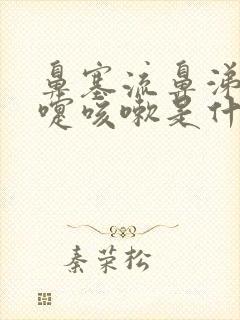 鼻塞流鼻涕
嚏咳嗽是什
秦荣松